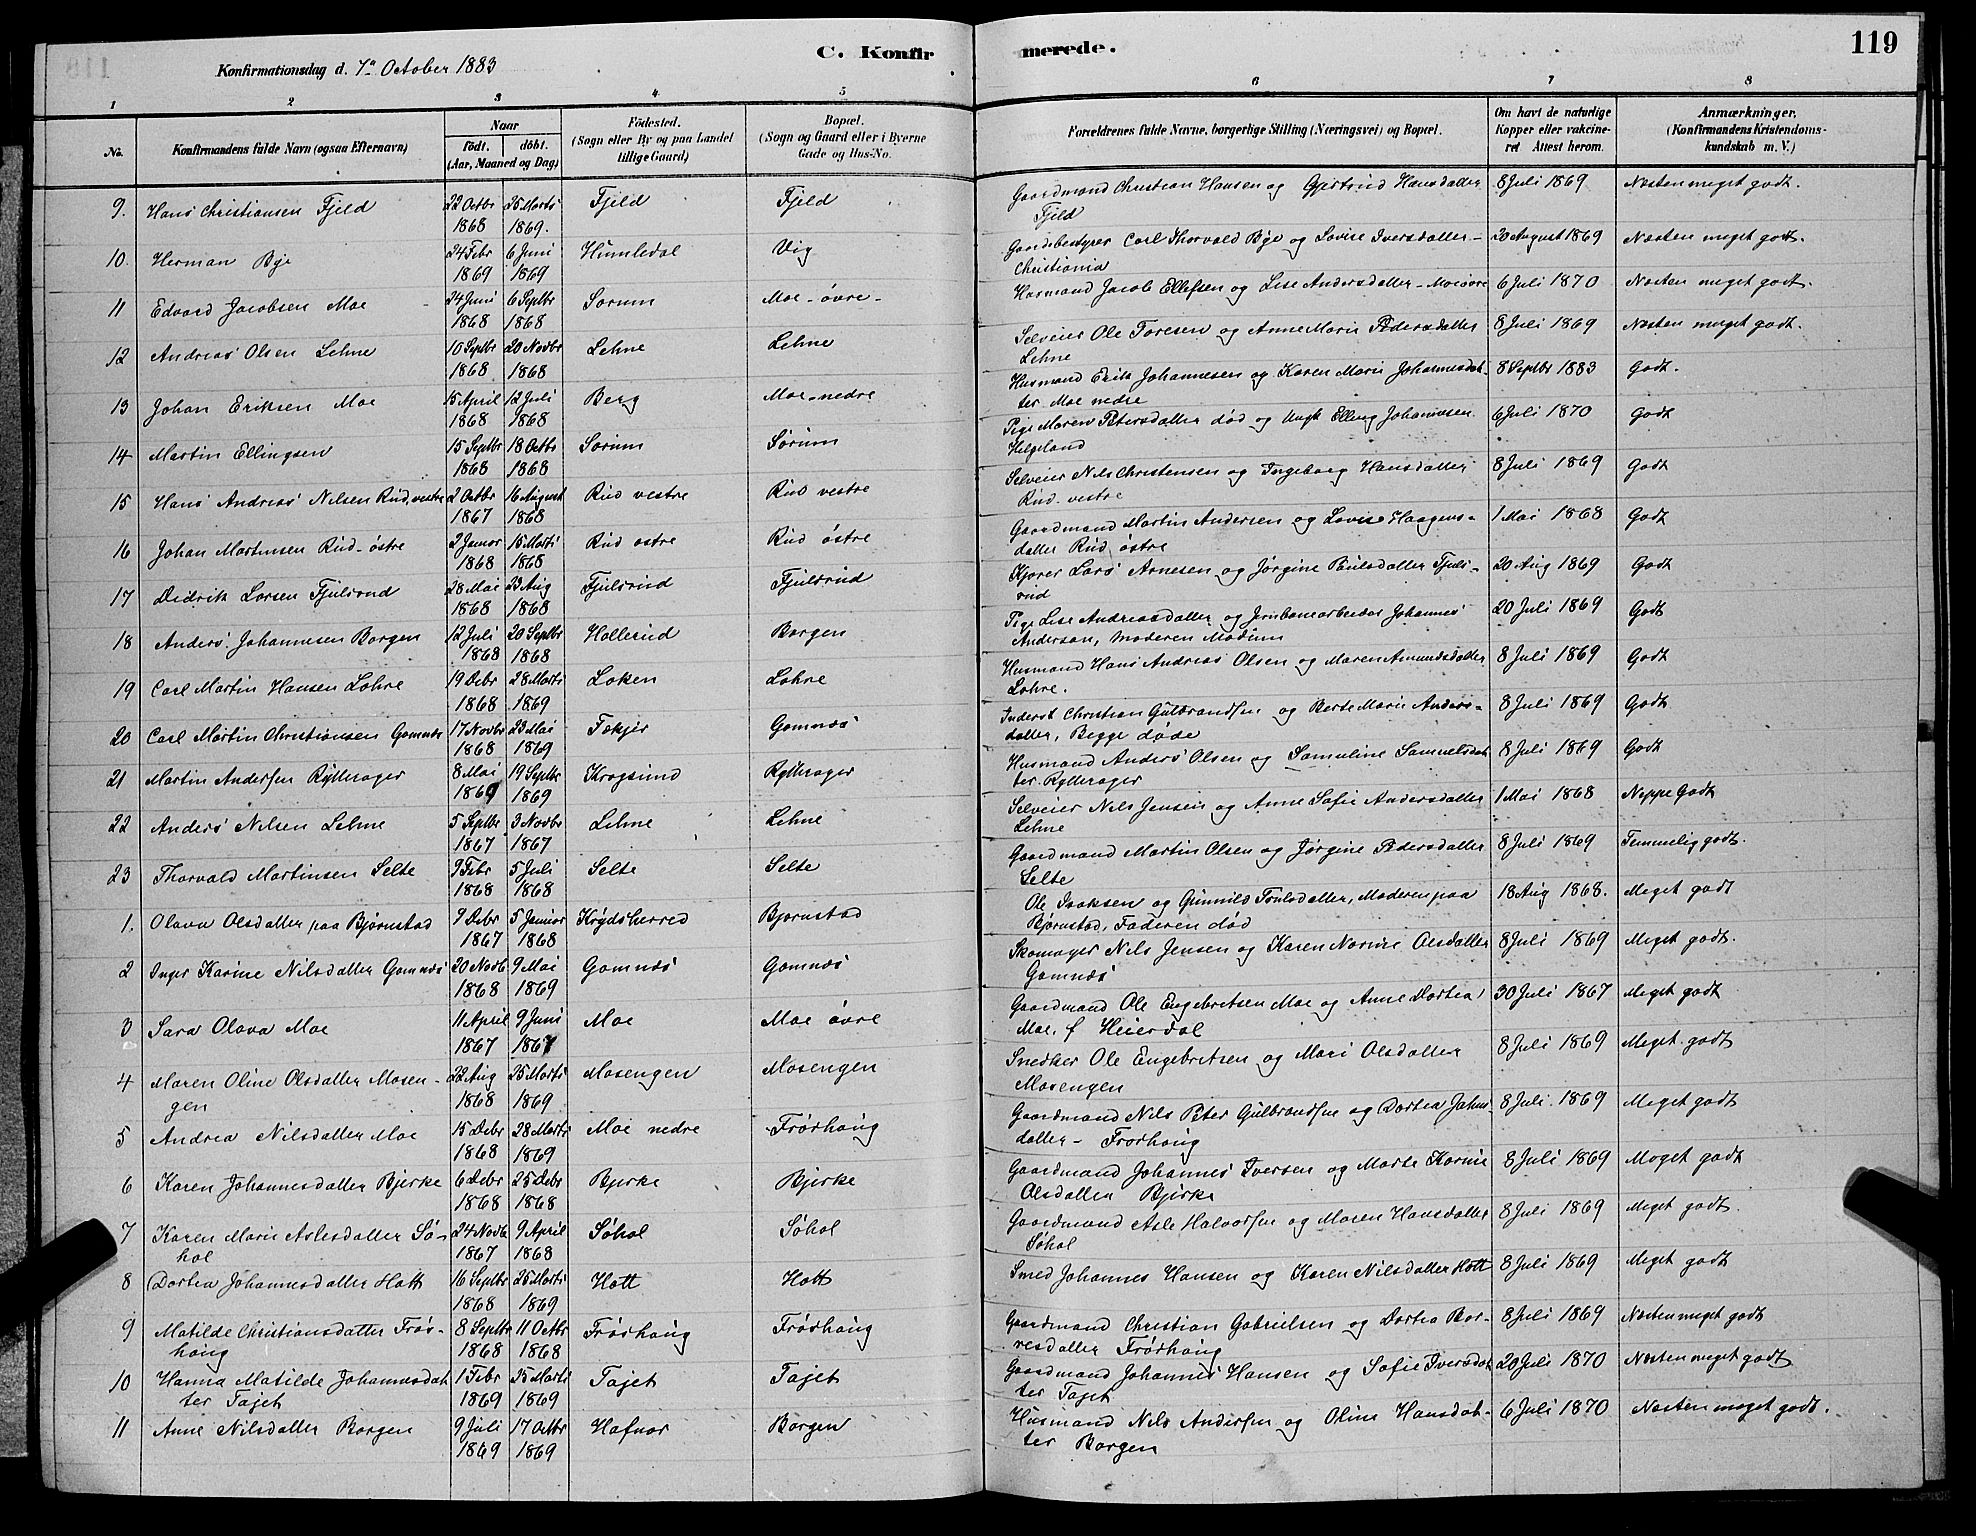 C. Konfirmerede.
119
Konfirmationsdag d. 7de October 1883
1 2 3 4 5 6 7 8
No. Konfirmandens fulde Navn (ogsaa Efternavn) Naar födt. döbt. (Aar, Maaned og Dag) Födested. (Sogn eller By og paa Landet tillige Gaard) Bopæl. (Sogn og Gaard eller i Byerne Gade og Hus-No. Forældrenes fulde Navne, borgerlige Stilling (Næringsvei) og Bopæl. Om havt de naturlige Kopper eller vakcineret Attest herom. Anmærkninger. (Konfirmandens Kristendomskundskab m. V.)
9. Hans Christiansen Fjeld 22 Octbr 1868 25 Marts 1869. Fjeld Fjeld Gaardmand Christian Hansen og Gjertrud Hansdatter Fjeld 8 Juli 1869 Næsten meget godt.
10. Herman Bye 24 Febr 1869 6 Juni 1869 Humledal Vig Gaardsbestyrer Carl Thorvald Bye og Lovise Iversdatter - Christiania 20 August 1869 Næsten meget godt.
11 Edvard Jacobsen Moe 24 Juni 1868 6 Septbr 1868 Sørum Moe - övre - Husmand Jacob Ellefsen og Lise Andersdatter - Moe övre 6 Juli 1870 Næsten meget godt.
12 Andreas Olsen Lehne 10 Septbr 1868 20 Novbr 1868 Lehne Lehne Selveier Ole Toresen og Anne Marie Pedersdatter Lehne 8 Juli 1869 Næsten meget godt.
13 Johan Eriksen Moe 15 April 1868 12 Juli 1868 Berg Moe - nedre Husmand Erik Johannesen og Karen Marie Johannesdatter Moe nedre 8 Septbr 1883 Godt.
14 Martin Ellingsen 15 Septbr 1868 18 Octbr 1868 Sørum Sørum Pige Maren Petersdatter död og Ungk Elling Johannesen Helgeland 6 Juli 1870 Godt
15 Hans Andreas Nilsen Rud, vestre 2 Octbr 1867 16 August 1868 Rud vestre Rud vestre Selveier Nils Christensen og Ingeborg Hansdatter Rud vestre 8 Juli 1869 Godt
16 Johan Martinsen Rud - östre 2 Januar 1868 15 Marts 1868 Rud östre Rud östre Gaardmand Martin Andersen og Lovise Haagensdatter Rud östre 1 Mai 1868 Godt
17 Didrik Larsen Fjulsrud 28 Mai 1868 23 Aug 1868 Fjulsrud Fjulsrud Kjører Lars Arnesen og Jörgine Poulsdatter Fjulsrud 20 Aug 1869 Godt
18 Anders Johannesen Borgen 12 Juli 1868 20 Septbr 1868 Hollerud Borgen Pige Lise Andreasdatter og Jernbanearbeider Johannes Anderson, Moderen Modum 20 Juli 1869 Godt
19 Carl Martin Hansen Lohre 19 Debr 1868 28 Marts 1869 Løken Lohre Husmand Hans Andreas Olsen og Maren Amundsdatter Lohre. 8 Juli 1869 Godt
20 Carl Martin Christiansen Gomnæs 17 Novbr 1868 23 Mai 1869 Fækjer Gomnæs Inderst Christian Gulbrandsen og Berte Marie Andersdatter, Begge döde 8 Juli 1869 Godt
21 Martin Andersen Rytterager 8 Mai 1869 19 Septbr 1869 Krogsund Rytterager Husmand Anders Olsen og Samuline Samuelsdatter Rytterager 8 Juli 1869 Godt
22 Anders Nilsen Lehne 5 Septbr 1867 3 Novbr 1867 Lehne Lehne Selveier Nils Jensen og Anne Sofie Andersdatter Lehne 1 Mai 1868 Neppe Godt
23 Thorvald Martinsen Selte 9 Febr 1868 5 Juli 1868 Selte Selte Gaardmand Martin Olsen og Jörgine Pedersdatter Selte 8 Juli 1869 Temmelig godt.
1. Olava Olsdatter paa Bjørnstad 9 Debr 1867 5 Januar 1868 Krydsherred Bjørnstad Ole Isaksen og Gunnild Trulsdatter, Moderen paa Bjørnstad, Faderen död 18 Aug 1868. Meget godt
2 Inger Karine Nilsdatter Gomnæs 20 Novb 1868 9 Mai 1869 Gomnæs Gomnæs Skomager Nils Jensen og Karen Marine Olsdatter Gomnæs 8 Juli 1869 Meget godt.
3 Sara Olava Moe 11 April 1867 9 Juni 1867 Moe Moe övre Gaardmand Ole Engebretsen Moe og Anne Dortea Moe, f Heierdal 30 Juli 1867 Meget godt
4 Maren Oline Olsdatter Mosengen 22 Aug 1868 25 Marts 1869 Mosengen Mosengen Snedker Ole Engebretsen og Mari Olsdatter Mosengen 8 Juli 1869 Meget godt
5 Andrea Nilsdatter Moe 15 Debr 1868 28 Marts 1869 Moe nedre Frörhaug Gaardmand Nils Peter Gulbrandsen og Dortea Jahnsdatter - Frörhaug 8 Juli 1869 Meget godt
6 Karen Johannesdatter Bjerke 6 Debr 1868 25 Debr 1868 Bjerke Bjerke Gaardmand Johannes Iversen og Marte Karine Olsdatter Bjerke 8 Juli 1869 Meget godt
7 Karen Marie Aslesdatter Söhol 24 Novb 1867 9 April 1868 Söhol Söhol Gaardmand Asle Halvorsen og Maren Hansdatter Söhol 8 Juli 1869 Meget godt.
8 Dortea Johannesdatter Hott 16 Septbr 1868 25 Marts 1869 Hott Hott Smed Johannes Hansen og Karen Nilsdatter Hott 8 Juli 1869 Meget godt
9 Matilde Christiansdatter Frörhaug 8 Septbr 1868 11 Octbr 1868 Frörhaug Frörhaug Gaardmand Christian Gabrielsen og Dortea Borresdatter Frörhaug 8 Juli 1869 Næsten meget godt
10 Hanna Matilde Johannesdatter Tajet 1 Febr 1869 25 Marts 1869 Tajet Tajet Gaardmand Johannes Hansen og Sofie Iversdatter Tajet 20 Juli 1870 Næsten meget godt
11 Anne Nilsdatter Borgen 9 Juli 1869 17 Octbr 1869 Hafnor Borgen Husmand Nils Andersen og Oline Hansdatter Borgen 6 Juli 1870 Næsten meget godt.